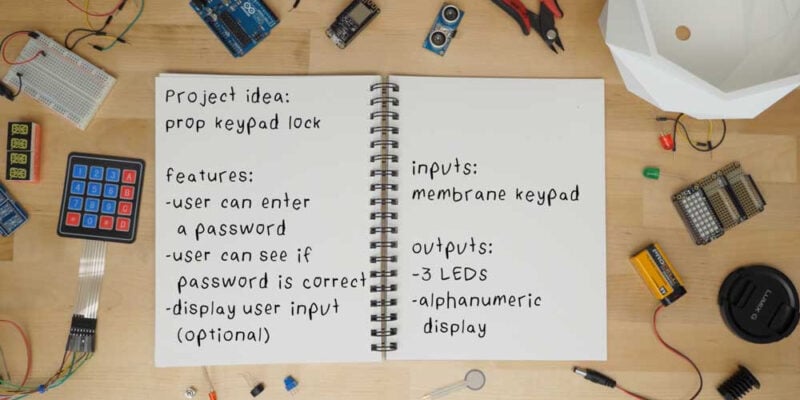 Project idea:
prop keypad lock
features:
-user can enter
a password
-user can see if
password is correct
-display user input
(optional)
inputs:
membrane keypad
outputs:
-3 LEDs
-alphanumeric
display
1 2 3 A
4 5 6 B
7 8 9 C
* 0 # D
LUMIX G